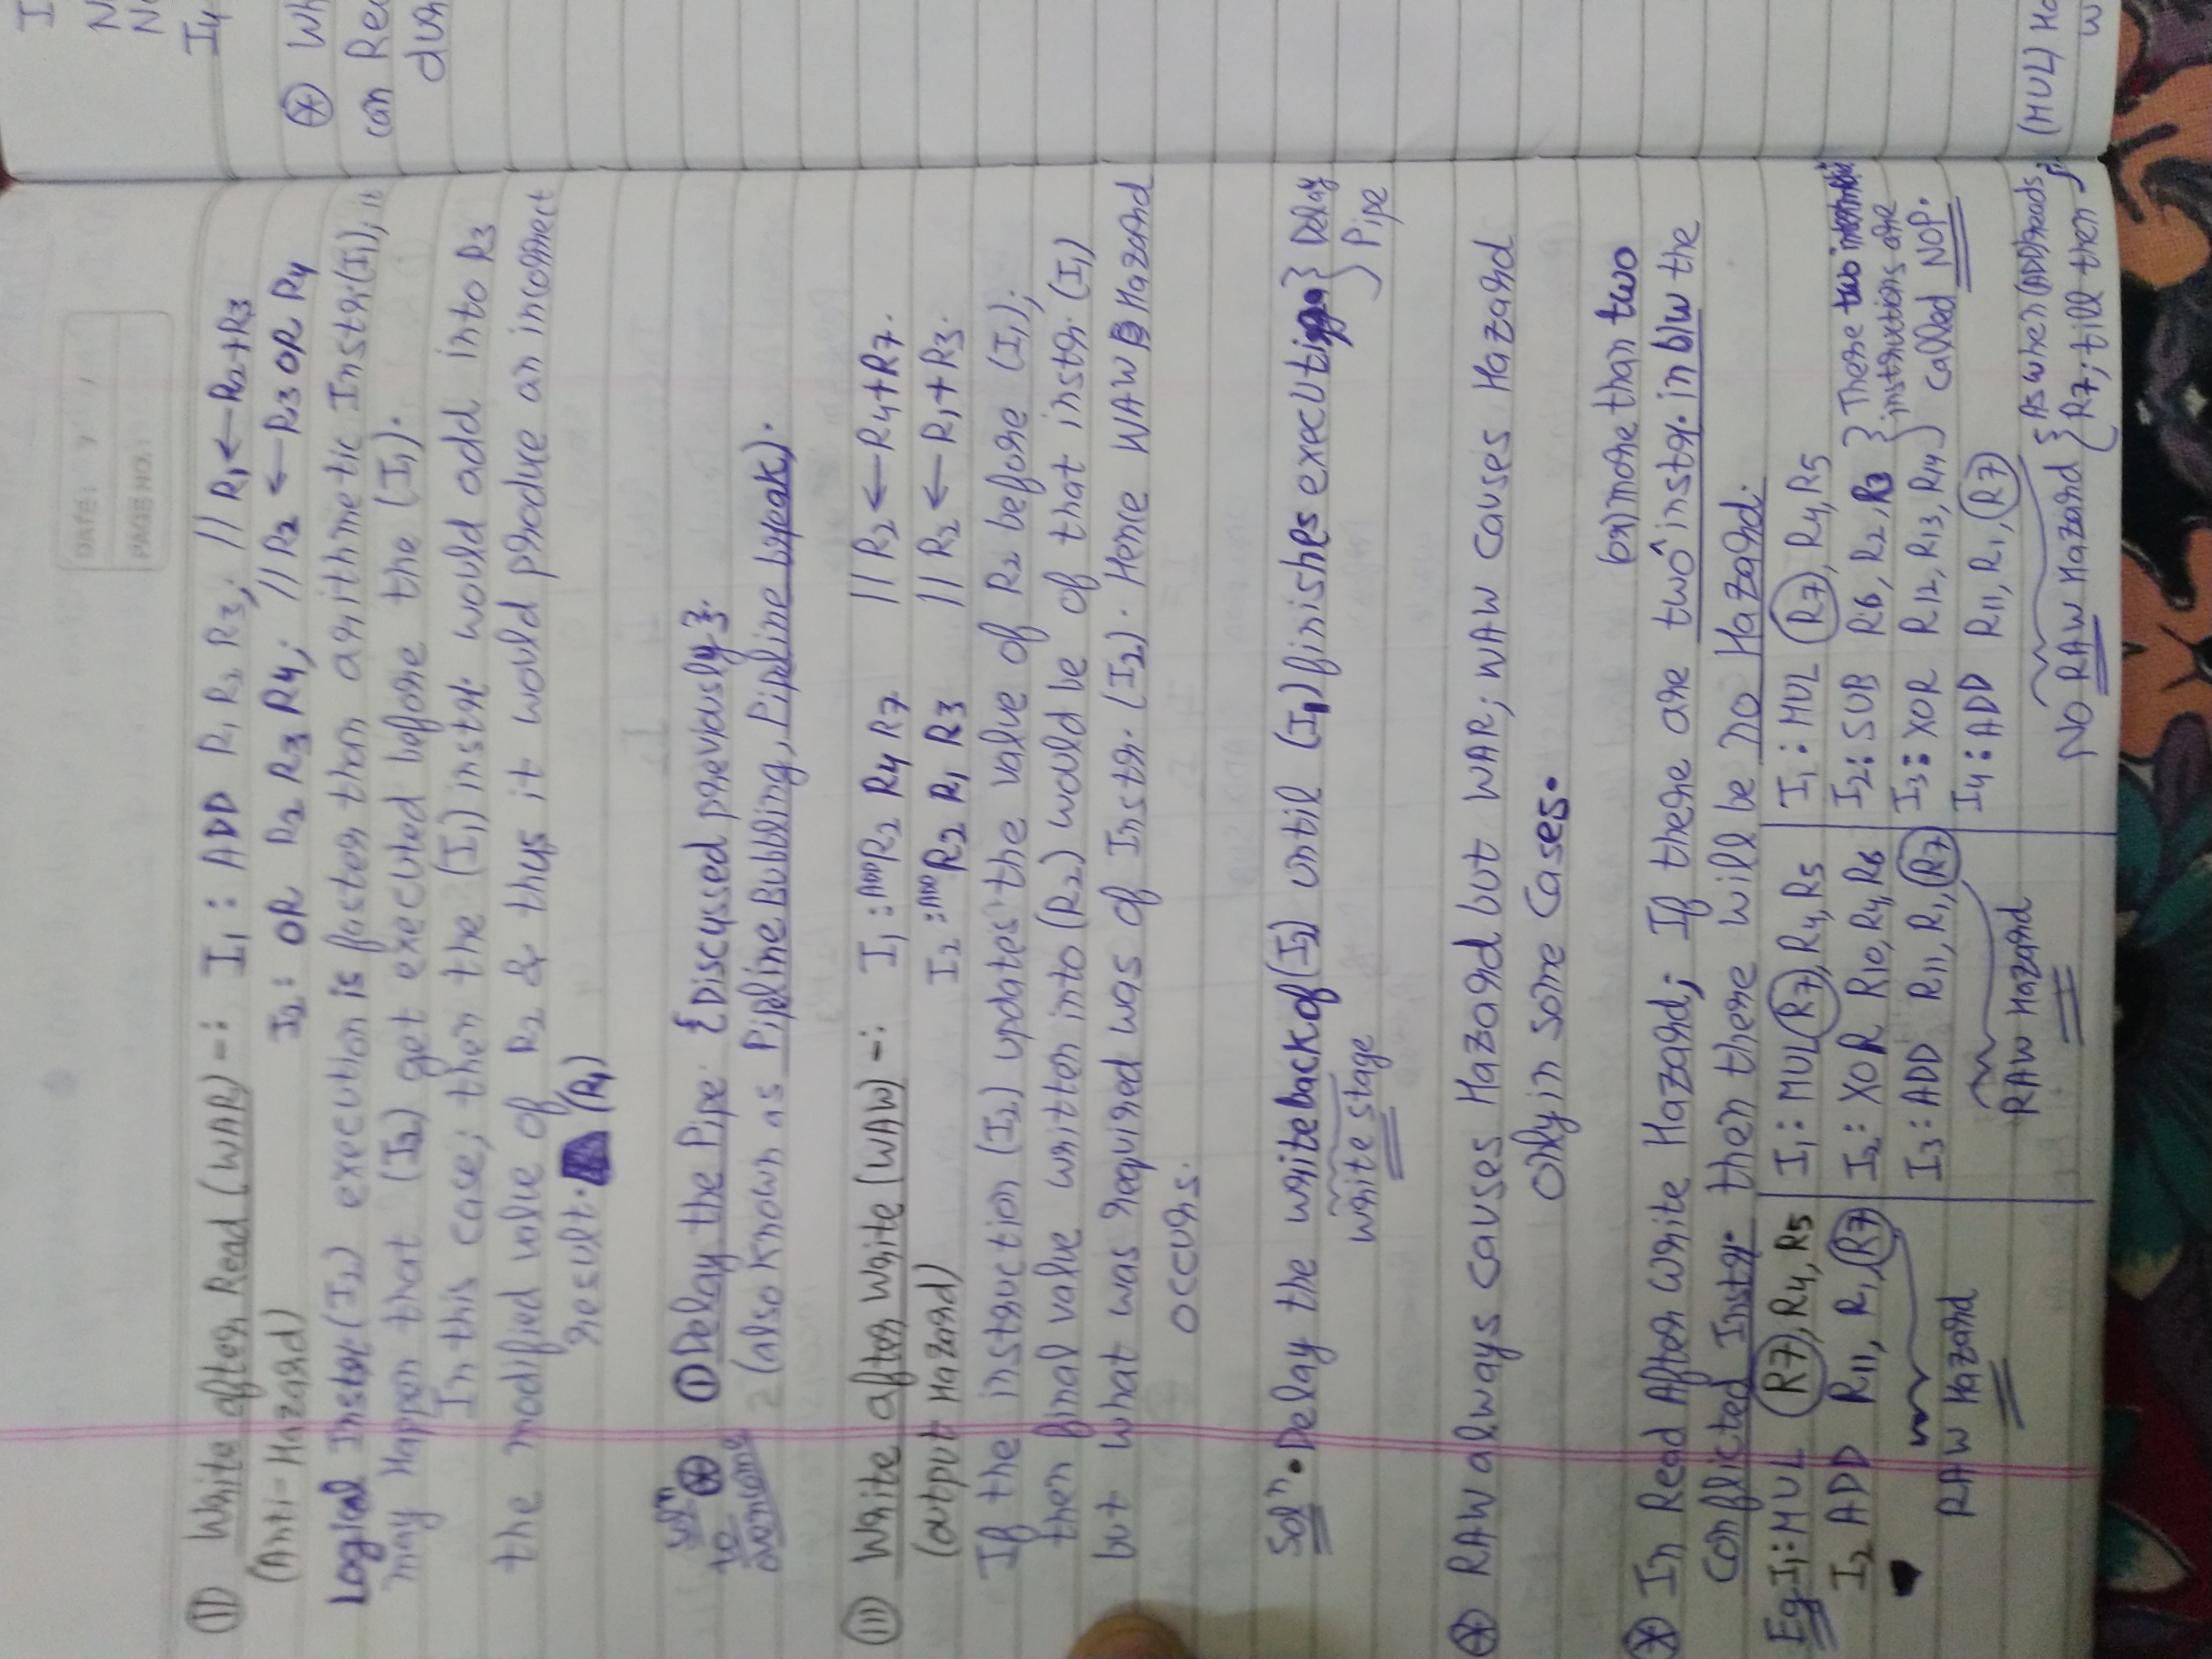 DATE: / /
PAGE NO.:
(II) Write after Read (WAR) -: I1 : ADD R1 R2 R3; // R1 ← R2+R3
(Anti-Hazard) I2: OR R2 R3 R4; // R2 ← R3 OR R4
Logical Instr(I2) execution is faster then arithmetic Instr(I1), it
may Happen that (I2) get executed before the (I1).
In this case; then the (I1) instr. would add into R3
the modified value of R2 & thus it would produce an incorrect
result. (R1)
Soln to overcome ⊛ ① Delay the Pipe {Discussed previously}.
(also Known as Pipeline Bubbling, Pipeline break).
(III) Write after Write (WAW) -: I1:ADD R2 R4 R7 // R2 ← R4+R7.
(output Hazard) I2:ADD R2 R1 R3 // R2 ← R1+R3.
If the instruction (I2) updates the value of R2 before (I1);
then final value written into (R2) would be of that instr. (I1)
but what was required was of Instr. (I2). Hence WAW Hazard
occurs.
Soln • Delay the writeback of (I2) until (I1) finishes executing } Delay
write stage Pipe
⊛ RAW always causes Hazard but WAR; WAW causes Hazard
Only in some cases.
(or) more than two
⊛ In Read After Write Hazard; If there are two ^ instr. in b/w the
Conflicted Instr. then there will be no Hazard.
Eg I1: MUL R7, R4, R5 | I1: MUL R7, R4, R5 | I1: MUL R7, R4, R5
I2 ADD R11, R1, R7 | I2: XOR R10, R4, R6 | I2: SUB R6, R2, R3 } These two intermediate
instructions are
RAW Hazard | I3: ADD R11, R1, R7 | I3: XOR R12, R13, R14 } called NOP.
RAW Hazard | I4: ADD R11, R1, R7
No RAW Hazard { As when (ADD) reads
R7; till then
I
N
N
I4
⊛ Wh
can Rea
dur
(MUL) Ha
w